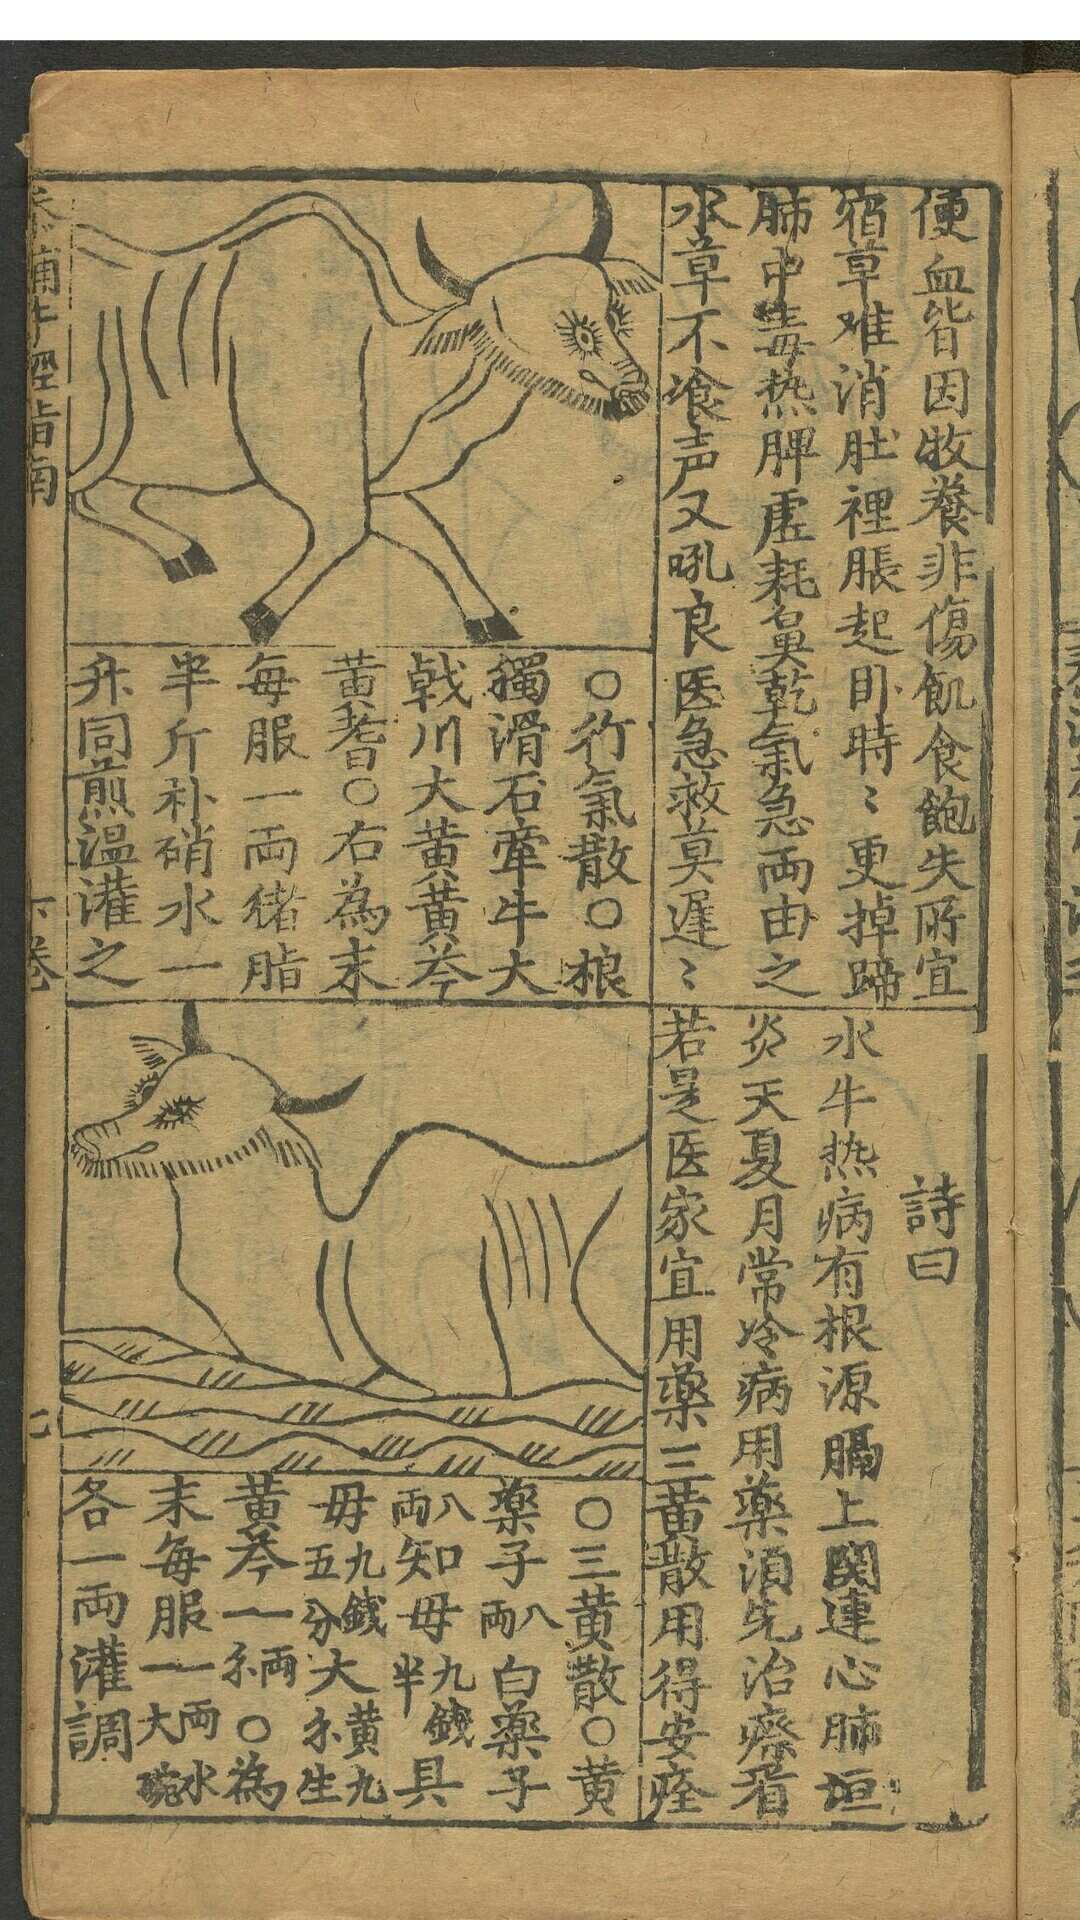 便血皆因牧養非傷飢食飽失所宜
宿草难消肚裡脹起卧時〻更掉蹄
肺中毒热脾虛耗鼻乾氣急両由之
水草不飡声又吼良医急救莫遲〻
〇行氣散〇根
獨滑石牽牛大
戟川大黄黄芩
黄耆〇右為末
每服一両猪脂
半斤朴硝水一
升同煎温灌之
詩曰
水牛热病有根源膈上関連心肺垣
炎天夏月常冷病用薬須先治療看
若是医家宜用薬三黄散用得安痊
〇三黄散〇黄
薬子八両白薬子
八両知母九錢半具
母九錢五分大黄九
黄芩一両〇為
末每服一両水一大碗
各一両灌調
牛經指南
下卷
七